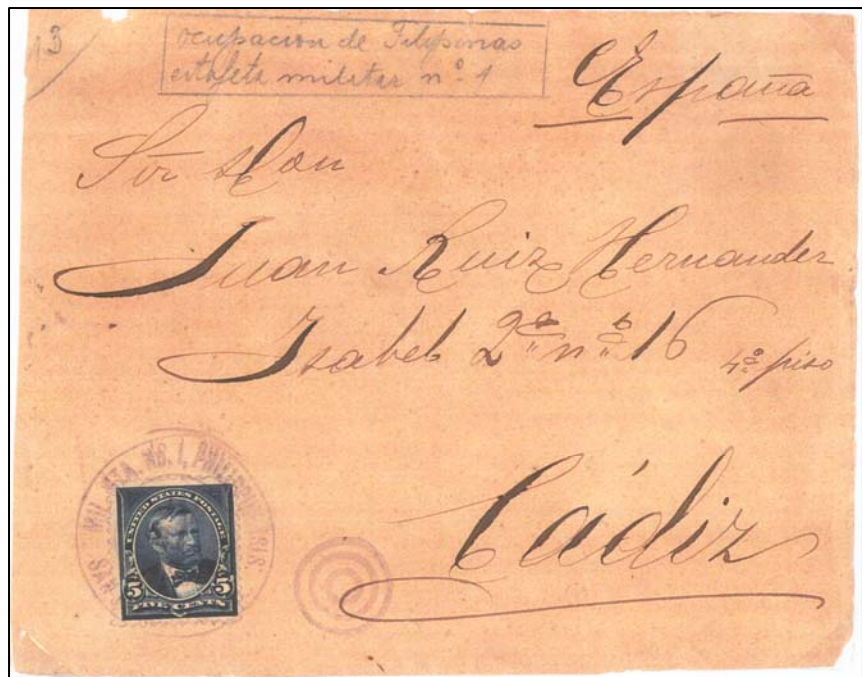 13
ocupación de Filipinas
estafeta militar nº 1
España
Sor Don
Juan Ruiz Hernandez
Isabel 2ª nº 16 4º piso
Cádiz
MIL. STA. NO. 1, PHILIPPINE ISLS.
SAN
UNITED STATES POSTAGE
5 5
FIVE CENTS